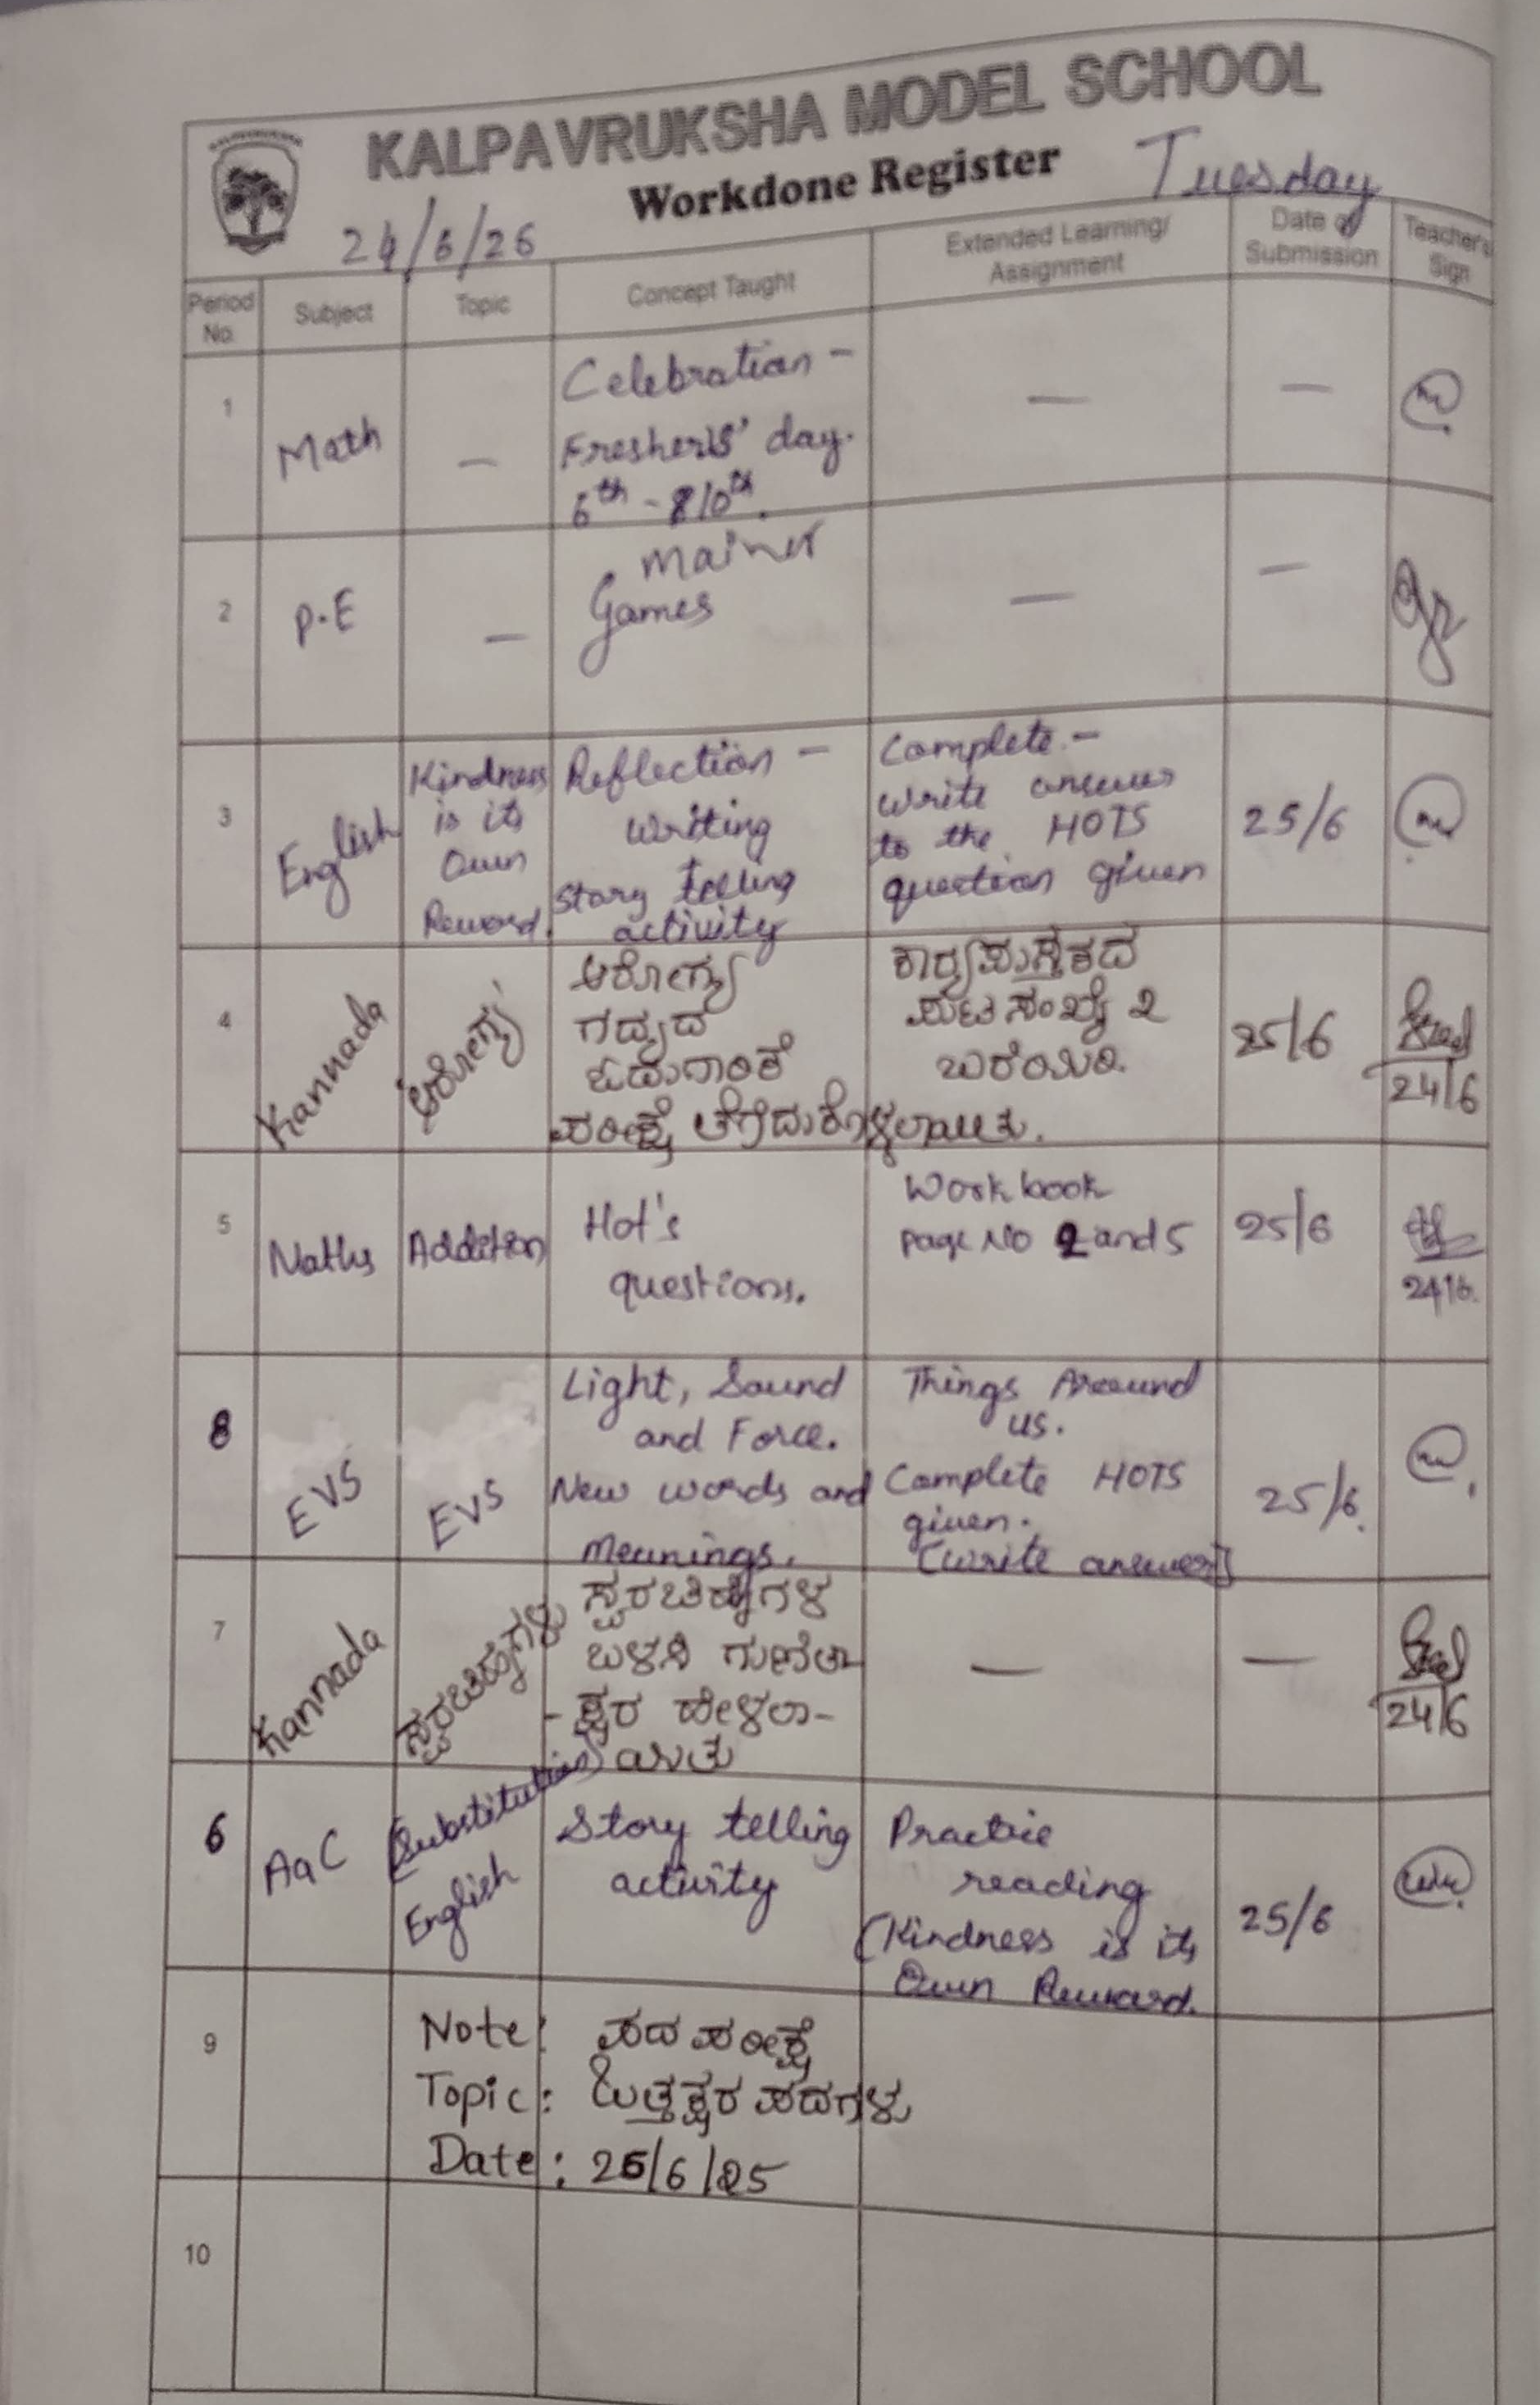 KALPAVRUKSHA MODEL SCHOOL
Workdone Register
Tuesday
24/6/26
Period No.
Subject
Topic
Concept Taught
Extended Learning/
Assignment
Date of
Submission
Teacher's
Sign
1
Math
—
Celebration -
Fresher's' day.
6th - 10th.
—
—
2
P.E
—
Mainer
Games
—
—
3
English
Kindness
is its
Own
Reward.
Reflection -
writing
Story telling
activity
Complete -
write answer
to the HOTS
question given
25/6
4
Kannada
ಆರೋಗ್ಯ
ಆರೋಗ್ಯ
ಗದ್ಯದ
ಓದುಗಾರಿಕೆ
ಪರೀಕ್ಷೆ ತೆಗೆದುಕೊಳ್ಳಲಾಯಿತು.
ಕಾರ್ಯಪುಸ್ತಕದ
ಪುಟ ಸಂಖ್ಯೆ 2
ಬರೆಯಿರಿ.
25/6
24/6
5
Maths
Addition
Hot's
questions.
Work book
page No 2 and 5
25/6
24/6.
8
EVS
EVS
Light, Sound
and Force.
New words and
Meanings.
Things Around
us.
Complete HOTS
given.
[write answer]
25/6.
7
Kannada
ಸ್ವರಚಿಹ್ನೆಗಳು
ಸ್ವರಚಿಹ್ನೆಗಳ
ಬಳಸಿ ಗುಣಿತಾ
- ಕ್ಷರ ಹೇಳಲಾ-
ಯಿತು
—
—
24/6
6
AaC
(Substitution)
English
Story telling
activity
Practice
reading
(Kindness is its
Own Reward.
25/6
9
Note: ಪದ ಪರೀಕ್ಷೆ
Topic: ಒತ್ತಕ್ಷರ ಪದಗಳು
Date: 26/6/25
10